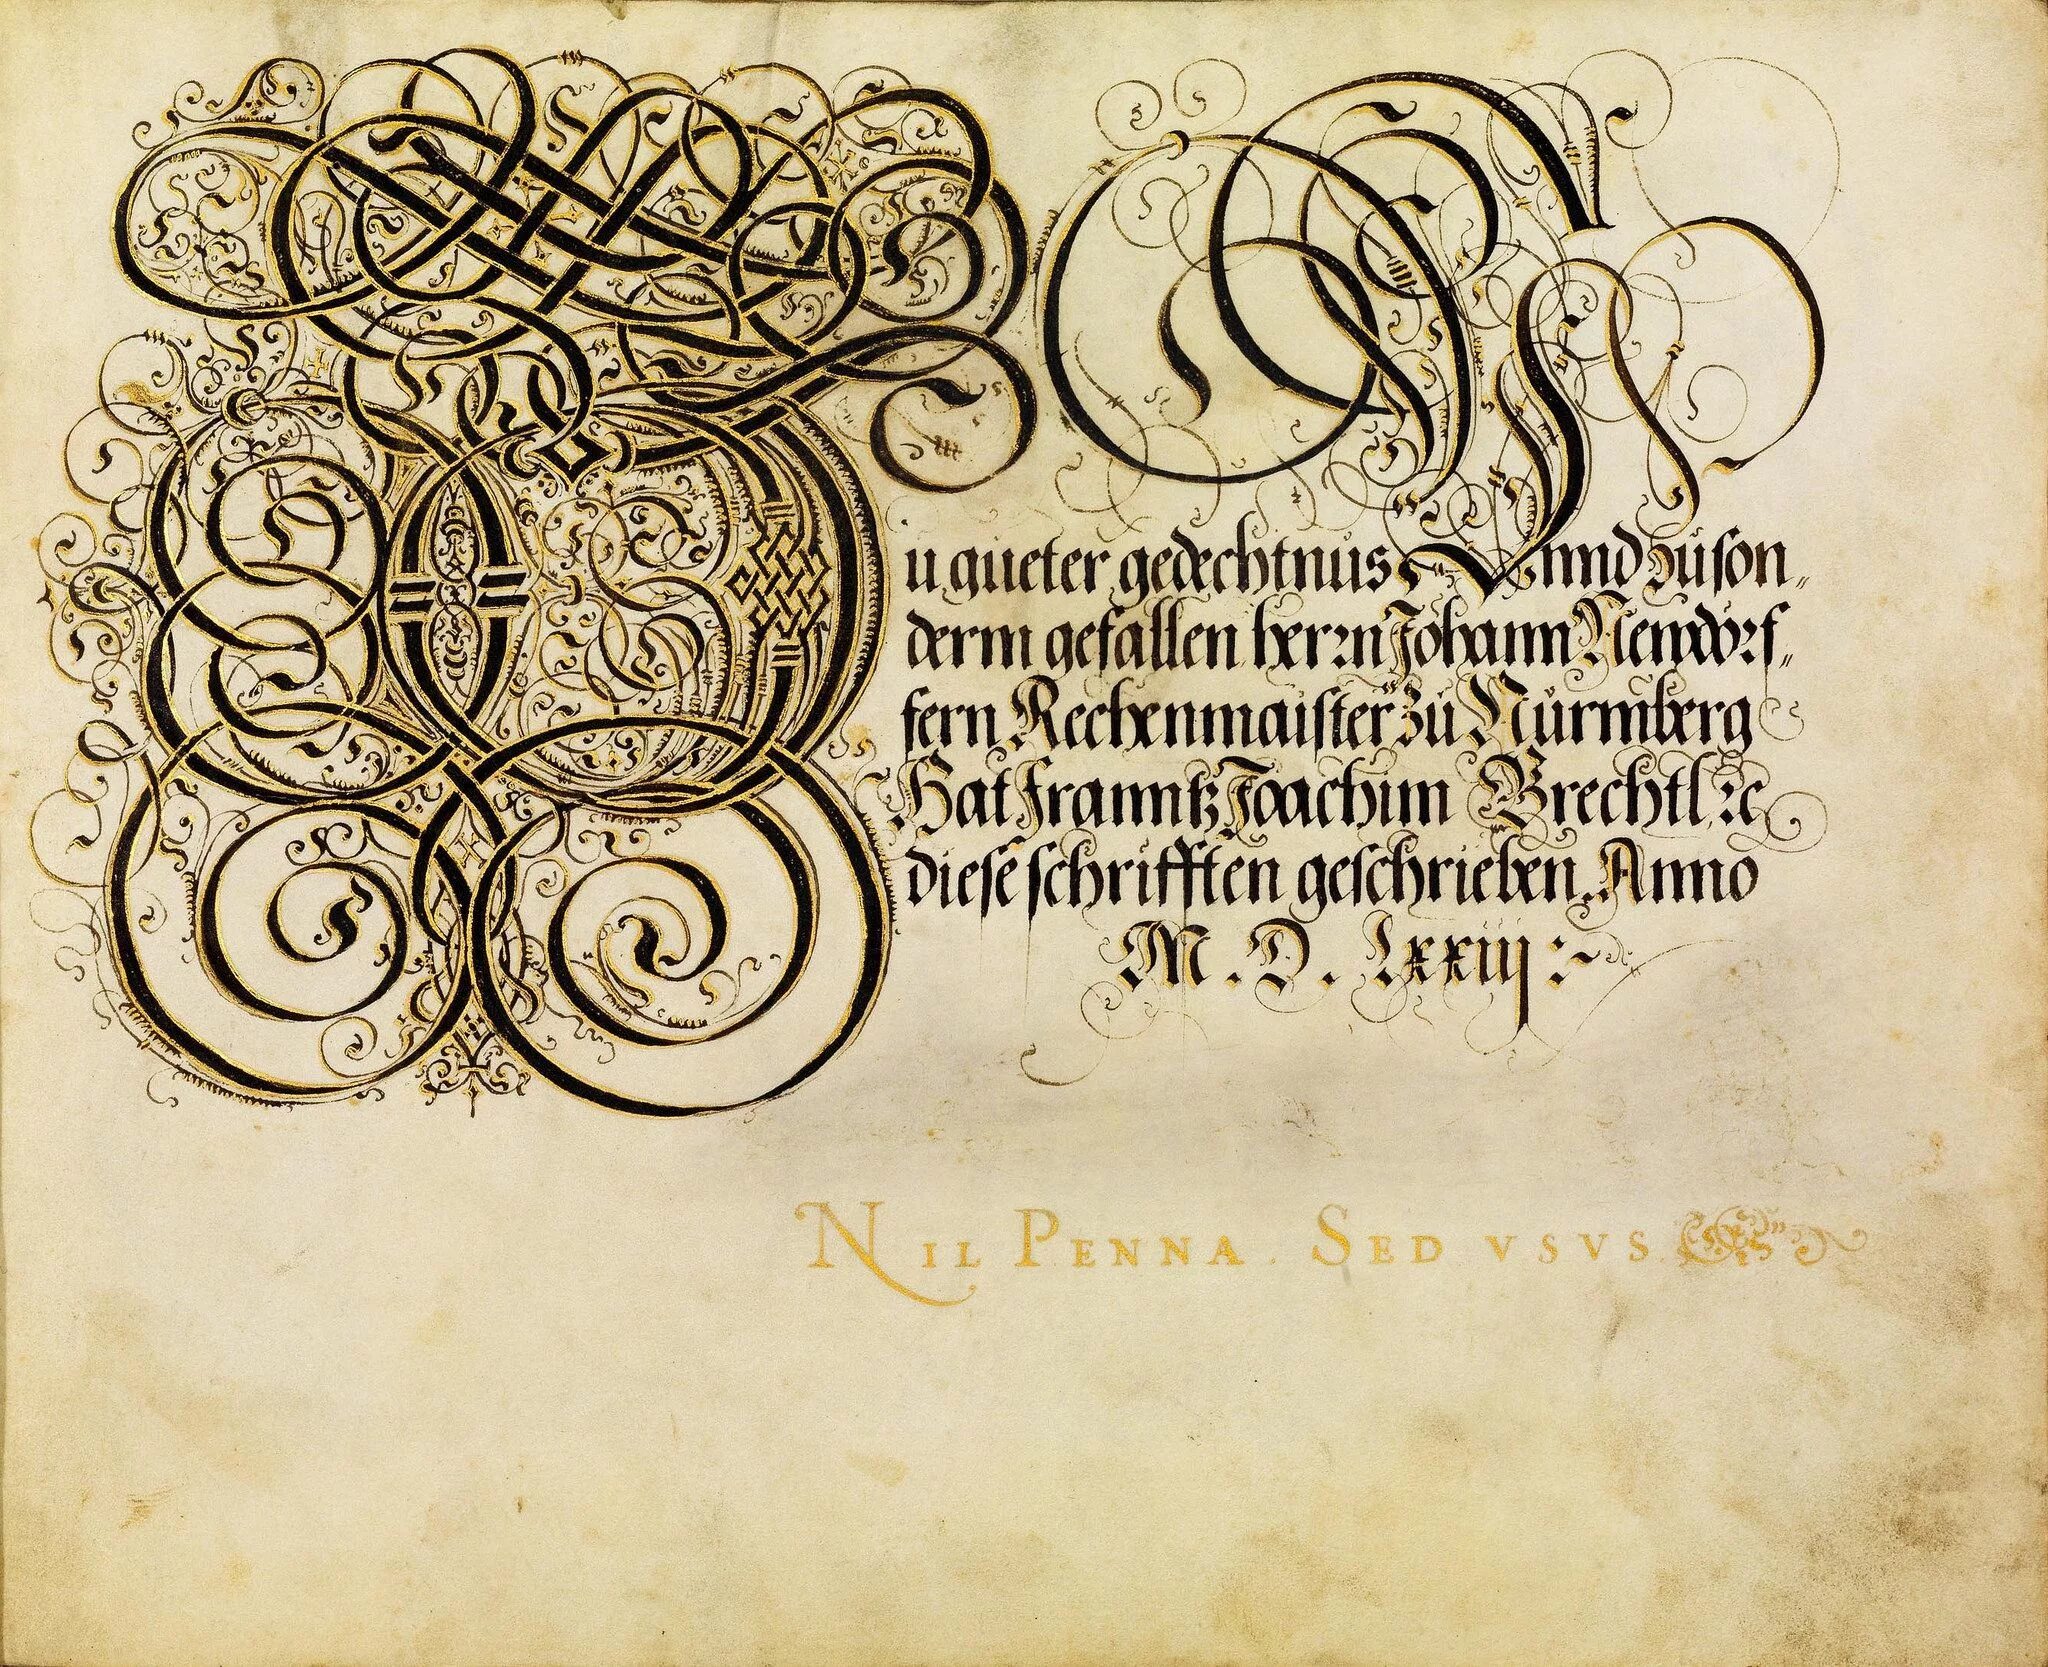 Zu gueter gedechtnus Vnnd zuson„
derm gefallen herrn Johann Neudörf„
fern Rechenmaister zu Nürmberg
Hat Franntz Joachim Brechtl ꝛc
diese schrifften geschrieben. Anno
M . D . Lxxiiij :~
Nil Penna . Sed vsvs